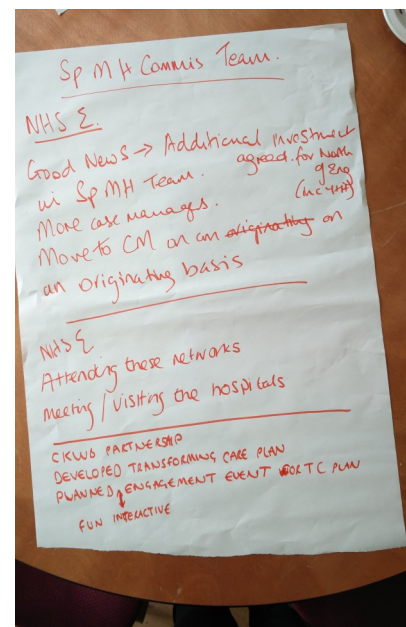 Sp MH Commis Team.
NHS E.
Good News → Additional Investment
in Sp MH Team. agreed for North
of Eng
More case managers. (inc Y+H)
Move to CM on an originating on
an originating basis
NHS E
Attending these networks
Meeting / Visiting the hospitals
CKWB PARTNERSHIP
DEVELOPED TRANSFORMING CARE PLAN
PLANNED ENGAGEMENT EVENT FOR TC PLAN
FUN INTERACTIVE